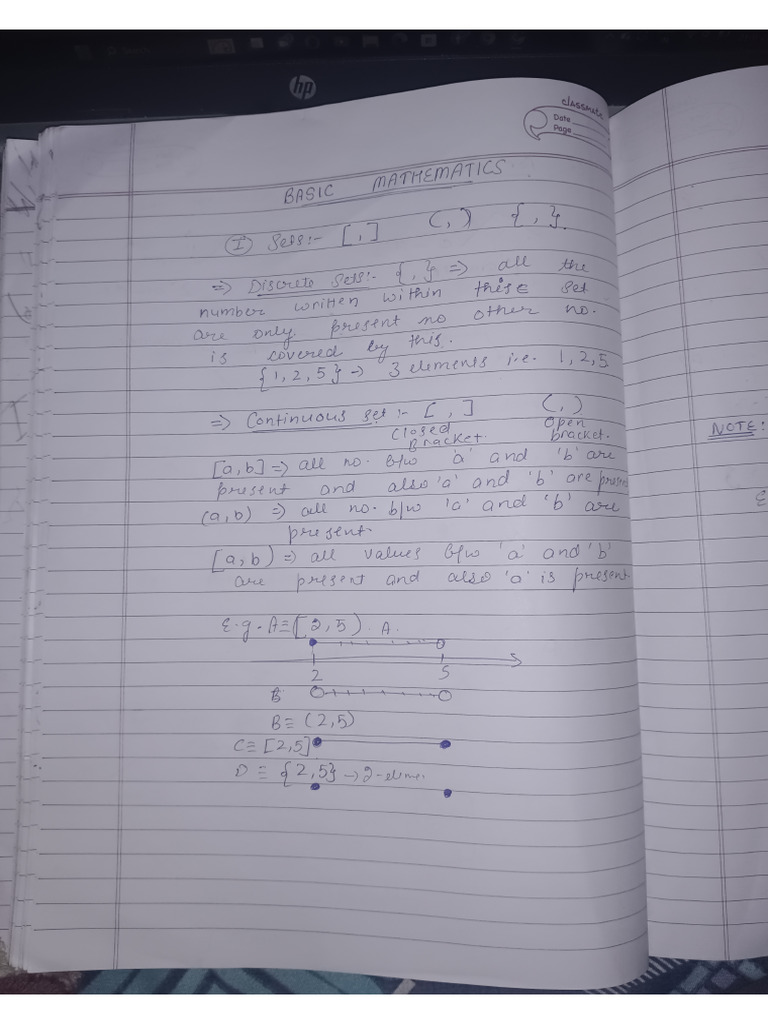 hp
classmate
Date
Page
BASIC MATHEMATICS
(I) Sets:- [,] (,) {,}.
⇒ Discrete sets:- {,} ⇒ all the
number written within this set
are only present no other no.
is covered by this.
{1,2,5} → 3 elements i.e. 1,2,5
⇒ Continuous set :- [,] (,)
Closed Bracket. Open bracket.
[a,b] ⇒ all no. b/w 'a' and 'b' are
present and also 'a' and 'b' are present
(a,b) ⇒ all no. b/w 'a' and 'b' are
present.
[a,b) ⇒ all values b/w 'a' and 'b'
are present and also 'a' is present.
E.g. A≡[2,5) . A.
2 5
B
B≡ (2,5)
C≡ [2,5]
D ≡ {2,5} → 2-elem.
NOTE: